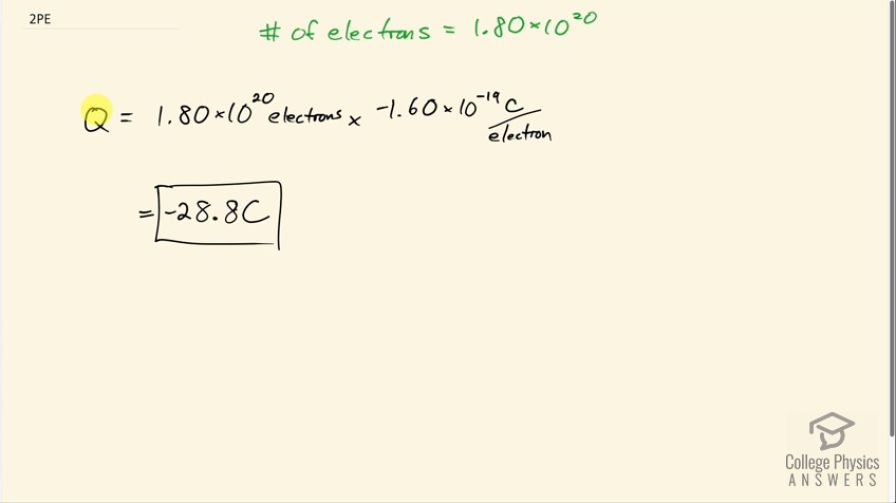 2PE
# of electrons = 1.80×10²⁰
Q = 1.80×10²⁰ electrons × -1.60×10⁻¹⁹ C/electron
= -28.8C
College Physics
ANSWERS